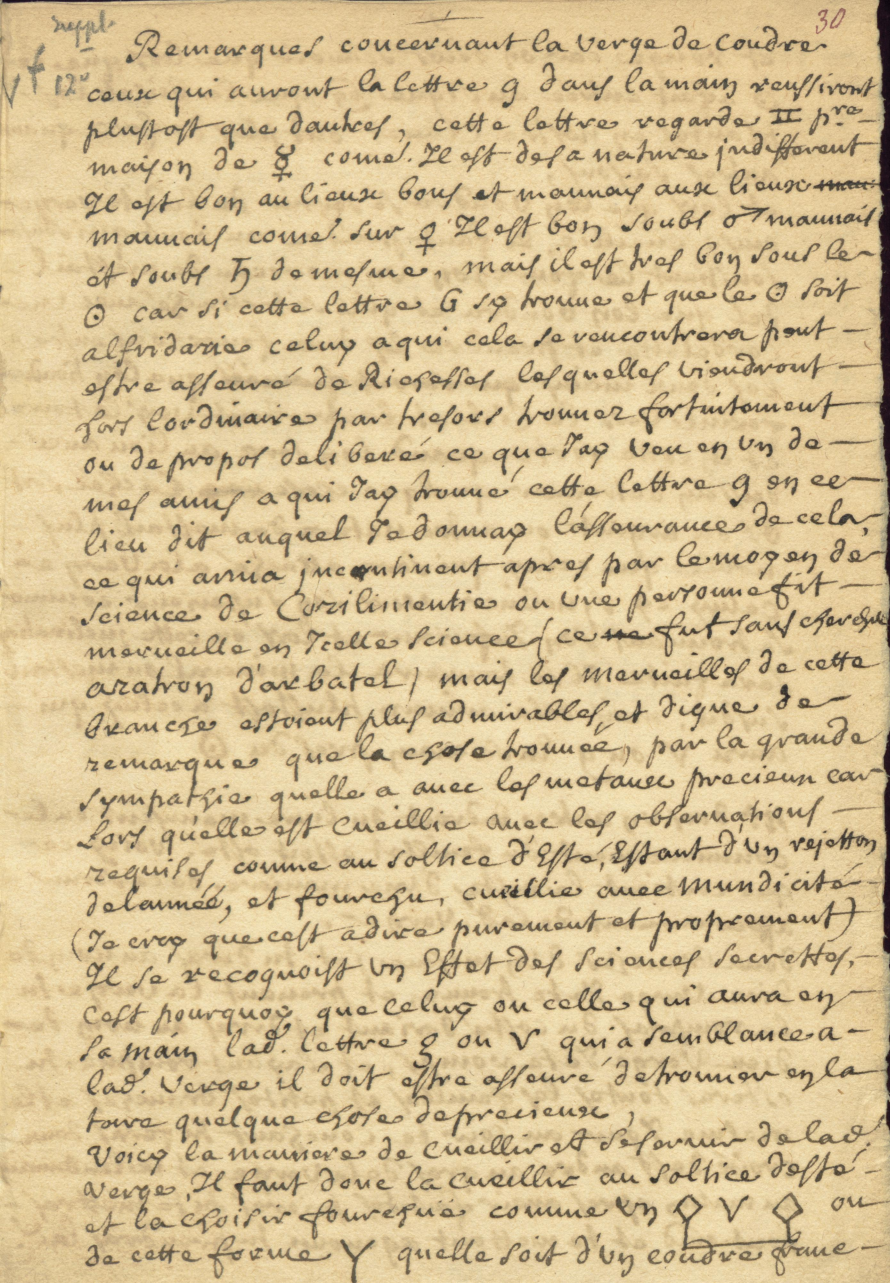 30
suppl.
12°
Remarques concernant la verge de coudre
ceux qui auront la lettre g dans la main reussiront
plustost que dautres, cette lettre regarde II pre
maison de ☿ come. Il est de sa nature indifferent
Il est bon au lieux bons et mauuais aux lieux mau
mauuais come. sur ♀ Il est bon soubs ♂ mauuais
et soubs ♄ de mesme, mais il est tres bon sous le
☉ car si cette lettre G sy trouue et que le ☉ soit
alfridarie celuy a qui cela se rencontrera peut
estre asseuré de Richesses lesquelles viendront
hors lordinaire par tresors trouuez fortuitement
ou de propos deliberé ce que Jay veu en vn de
mes amis a qui Jay trouué cette lettre g en ce
lieu dit auquel Je donnay lasseurance de cela,
ce qui ariua incontinent apres par le moyen de
science de Corilimentie ou vne personne fit
merueille en Icelle science (ce ne fut sans cherche
aratron d'arbatel) mais les merueilles de cette
branche estoient plus admirables, et digne de
remarque que la chose trouueé, par la grande
sympathie quelle a auec les metaux precieux car
Lors qu'elle est cueillie auec les obseruations
requises comme au solstice d'Esté, Estant d'vn rejetton
de lanneé, et fourchu, cueillie auec mundicité
(Je croy que cest adire purement et proprement)
Il se recognoist vn Effet des sciences secrettes,
cest pourquoy que celuy ou celle qui aura en
sa main lad. lettre g ou V qui a semblance a
lad. verge il doit estre asseuré de trouuer en la
terre quelque chose de precieux,
Voicy la maniere de cueillir et se seruir de lad.
verge, Il faut donc la cueillir au solstice desté
et la choisir fourchue comme vn ◇ V ◇ ou
de cette forme Y quelle soit d'vn coudre franc